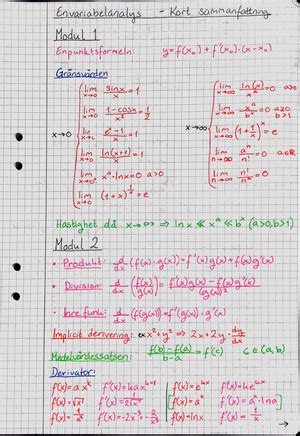 Envariabelanalys - Kort sammanfattning
Modul 1
Enpunktsformeln: y = f(x₀) + f'(x₀)·(x-x₀)
Gränsvärden
x→0
lim x→0 sinx/x = 1
lim x→0 (1-cosx)/x² = 1/2
lim x→0 (eˣ-1)/x = 1
lim x→0 ln(x+1)/x = 1
lim x→0⁺ xᵃ·lnx = 0 a>0
lim x→0 (1+x)^(1/x) = e
x→∞
lim x→∞ ln(x)/xᵃ = 0 a>0
lim x→∞ xᵃ/bˣ = 0 b>1
lim x→∞ (1+1/x)ˣ = e
lim n→∞ aⁿ/n! = 0 a∈R
lim n→∞ n!/nⁿ = 0
Hastighet då x→∞ ⇒ lnx ≪ xᵃ ≪ bˣ (a>0, b>1)
Modul 2
• Produkt: d/dx (f(x)·g(x)) = f'(x)g(x) + f(x)g'(x)
• Division: d/dx (f(x)/g(x)) = (f'(x)g(x) - f(x)g'(x))/(g(x))²
• Inre funk: d/dx (f(g(x))) = f'(g(x))·g'(x)
Implicit derivering: x²+y² ⇒ 2x+2y·dy/dx
Medelvärdessatsen: (f(b)-f(a))/(b-a) = f'(c) c∈(a,b)
Derivator:
f(x) = axᵏ f'(x) = kaxᵏ⁻¹
f(x) = √x f'(x) = 1/(2√x)
f(x) = e^(kx) f'(x) = ke^(kx)
f(x) = aˣ f'(x) = aˣ·lna
f(x) = lnx f'(x) = 1/x